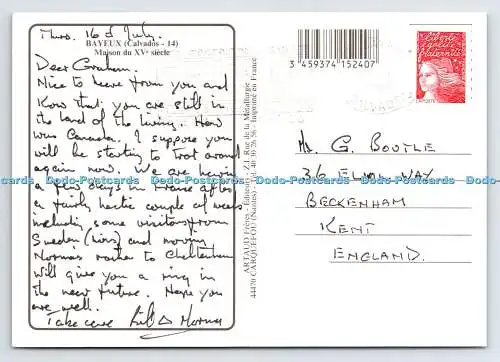 Thurs. 16th July.
BAYEUX (Calvados - 14)
Maison du XVe siècle
Dear Graham.
Nice to heare from you and
Know that you are still in
the land of the living. How
was Canada. I suppose you
will be starting to Trot around
again now. We are having
a few days in France after
a fairly hectic couple of weeks
including some visitors from
Sweden and moving
Normas to Cheltenham
Will give you a ring in
the near future. Hope you
are well.
Take care Norma
ARTAUD Frères - Editeurs - Z.I. Rue de la Métallurgie
44470 CARQUEFOU (Nantes) Imprimé en France
3 459374 152407
Liberté
égalité
fraternité
LA POSTE
Mr. G. BOUTLE
36 ELWILL WAY
BECKENHAM
KENT
ENGLAND.
Postcards www.Delta-Postcards.co.uk